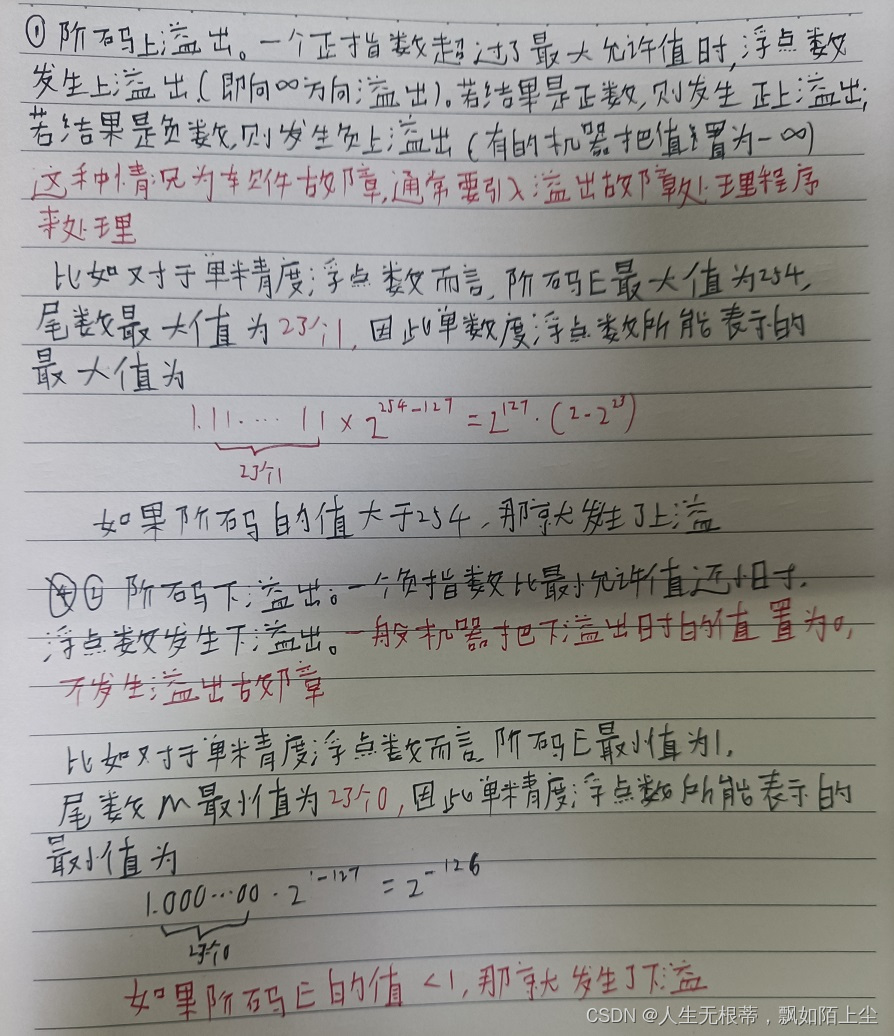 ① 阶码上溢出。一个正指数超过了最大允许值时,浮点数
发生上溢出(即向∞方向溢出)。若结果是正数,则发生 正上溢出;
若结果是负数,则发生负上溢出(有的机器把值置为-∞)
这种情况为软件故障,通常要引入溢出故障处理程序
来处理
比如对于单精度浮点数而言,阶码E最大值为254,
尾数最大值为23个1,因此单数度浮点数所能表示的
最大值为
1.11.... 11 × 2^{254-127} = 2^{127}·(2-2^{23})
23个1
如果阶码的值大于254,那就发生了上溢
② 阶码下溢出。一个负指数比最小允许值还小时.
浮点数发生下溢出。一般机器把下溢出时的值置为0,
不发生溢出故障
比如对于单精度浮点数而言,阶码E最小值为1,
尾数M最小值为23个0,因此单精度浮点数所能表示的
最小值为
1.000...00 · 2^{1-127} = 2^{-126}
23个0
如果阶码E的值<1,那就发生了下溢
CSDN @人生无根蒂,飘如陌上尘